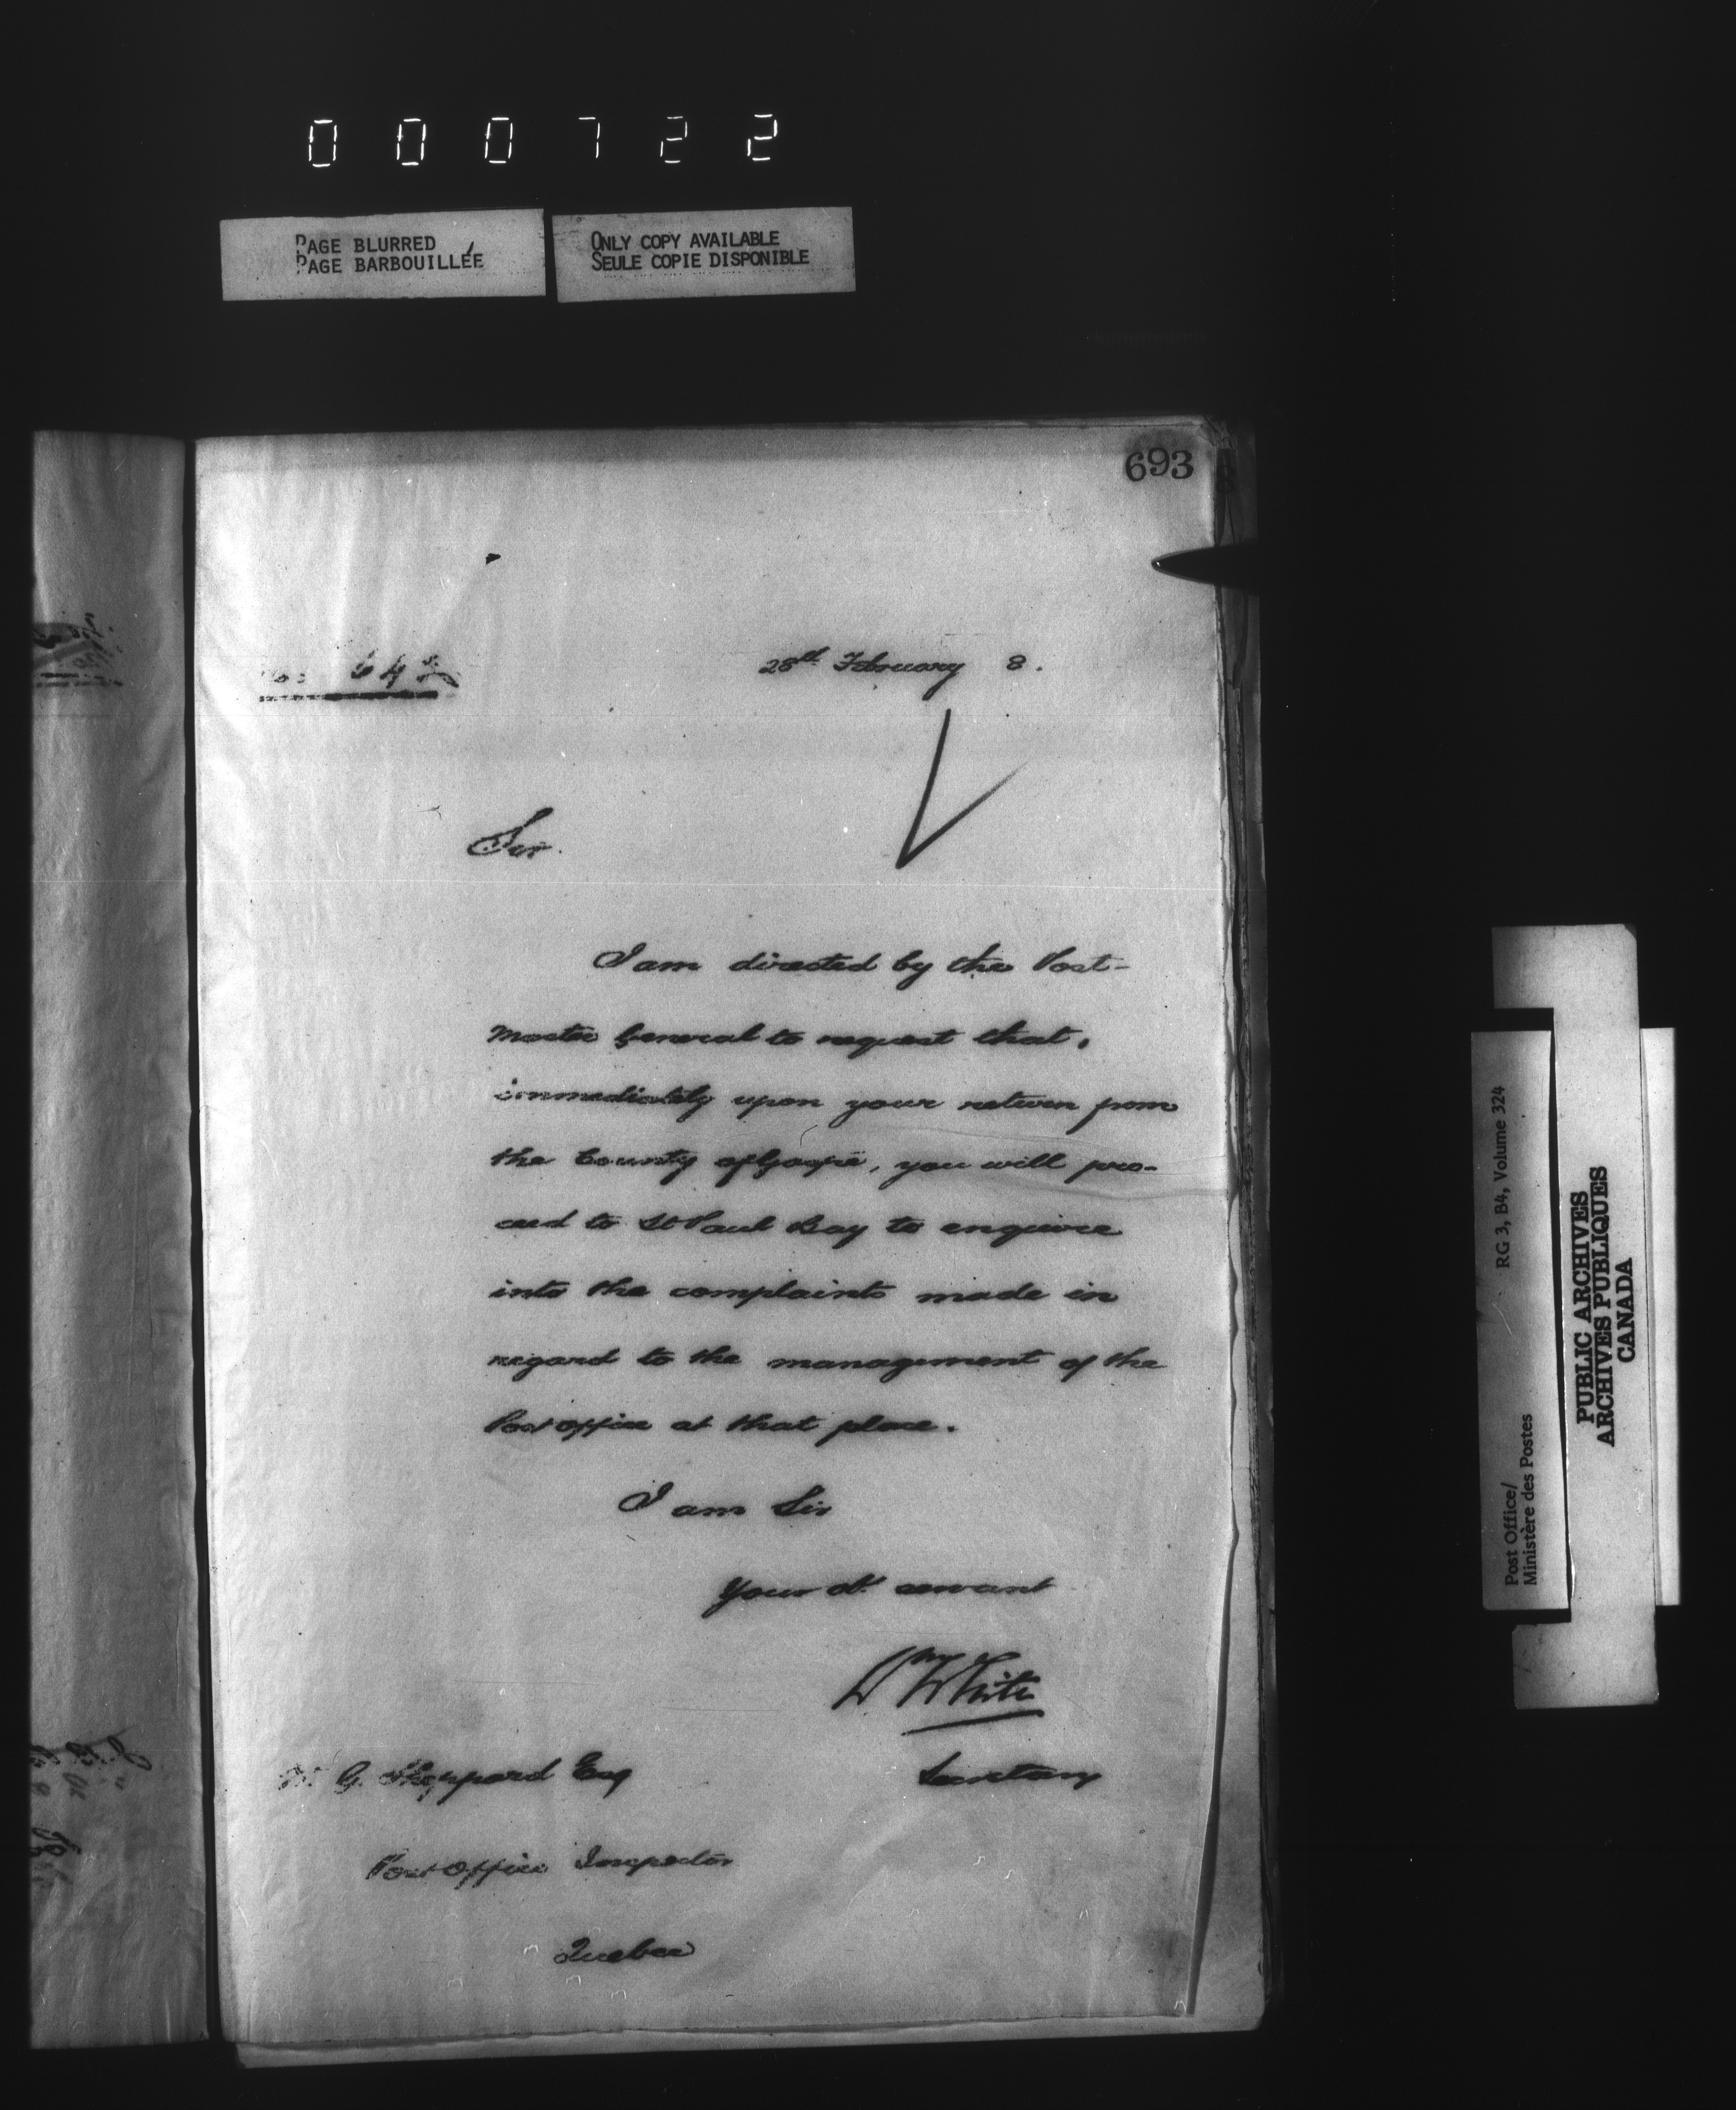 000722
PAGE BLURRED
PAGE BARBOUILLÉE
ONLY COPY AVAILABLE
SEULE COPIE DISPONIBLE
693
28th February 8.
Sir.
I am directed by the Post-
master General to request that,
immediately upon your return from
the County of Gaspé, you will pro-
ceed to St Paul Bay to enquire
into the complaints made in
regard to the management of the
Post office at that place.
I am Sir
Your ob. servant
Wm White
Secretary
G. Sheppard Esq
Post Office Inspector
Quebec
Post Office/
Ministère des Postes
RG 3, B4, Volume 324
PUBLIC ARCHIVES
ARCHIVES PUBLIQUES
CANADA